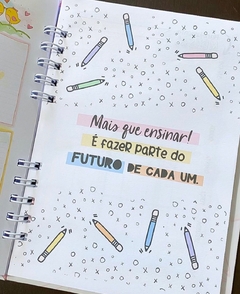 Mais que ensinar!
É fazer parte do
FUTURO DE CADA UM.